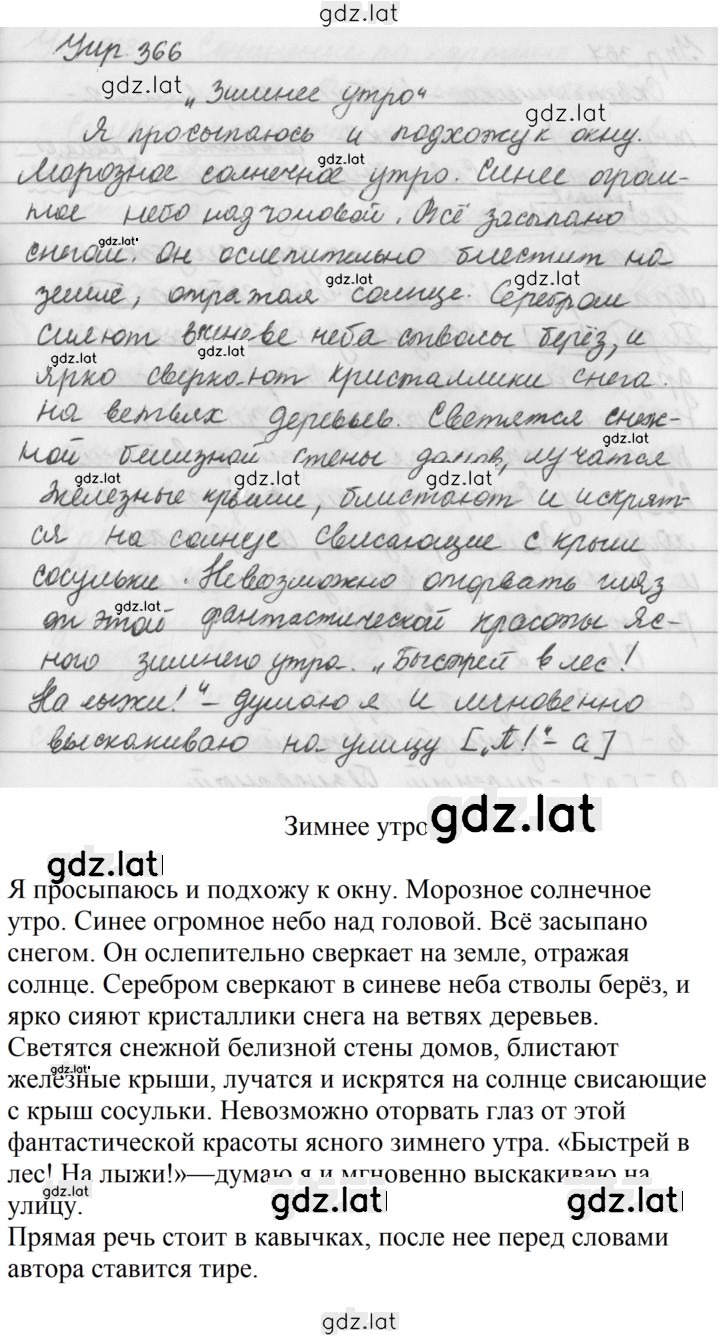 gdz.lat
Упр 366
gdz.lat
„Зимнее утро“
gdz.lat
Я просыпаюсь и подхожу к окну.
gdz.lat
Морозное солнечное утро. Синее огром-
ное небо над головой. Всё засыпано
gdz.lat
снегом. Он ослепительно блестит на
gdz.lat
gdz.lat
земле, отражая солнце. Серебром
сияют в синеве неба стволы берёз, и
gdz.lat
gdz.lat
ярко сверкают кристаллики снега
на ветвях деревьев. Светятся снеж-
gdz.lat
ной белизной стены домов, лучатся
gdz.lat
gdz.lat
железные крыши, блистают и искрят-
ся на солнце свисающие с крыш
сосульки. Невозможно оторвать глаз
gdz.lat
от этой фантастической красоты яс-
ного зимнего утра. „Быстрей в лес!
На лыжи!“ – думаю я и мгновенно
выскакиваю на улицу [„П!“ – а]
Зимнее утро
gdz.lat
gdz.lat
Я просыпаюсь и подхожу к окну. Морозное солнечное
утро. Синее огромное небо над головой. Всё засыпано
снегом. Он ослепительно сверкает на земле, отражая
солнце. Серебром сверкают в синеве неба стволы берёз, и
ярко сияют кристаллики снега на ветвях деревьев.
Светятся снежной белизной стены домов, блистают
gdz.lat
железные крыши, лучатся и искрятся на солнце свисающие
с крыш сосульки. Невозможно оторвать глаз от этой
фантастической красоты ясного зимнего утра. «Быстрей в
лес! На лыжи!»—думаю я и мгновенно выскакиваю на
gdz.lat
gdz.lat
gdz.lat
улицу.
Прямая речь стоит в кавычках, после нее перед словами
автора ставится тире.
gdz.lat